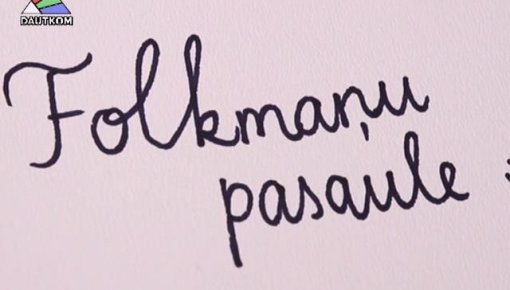 DAUTKOM
Folkmaņu
pasaule